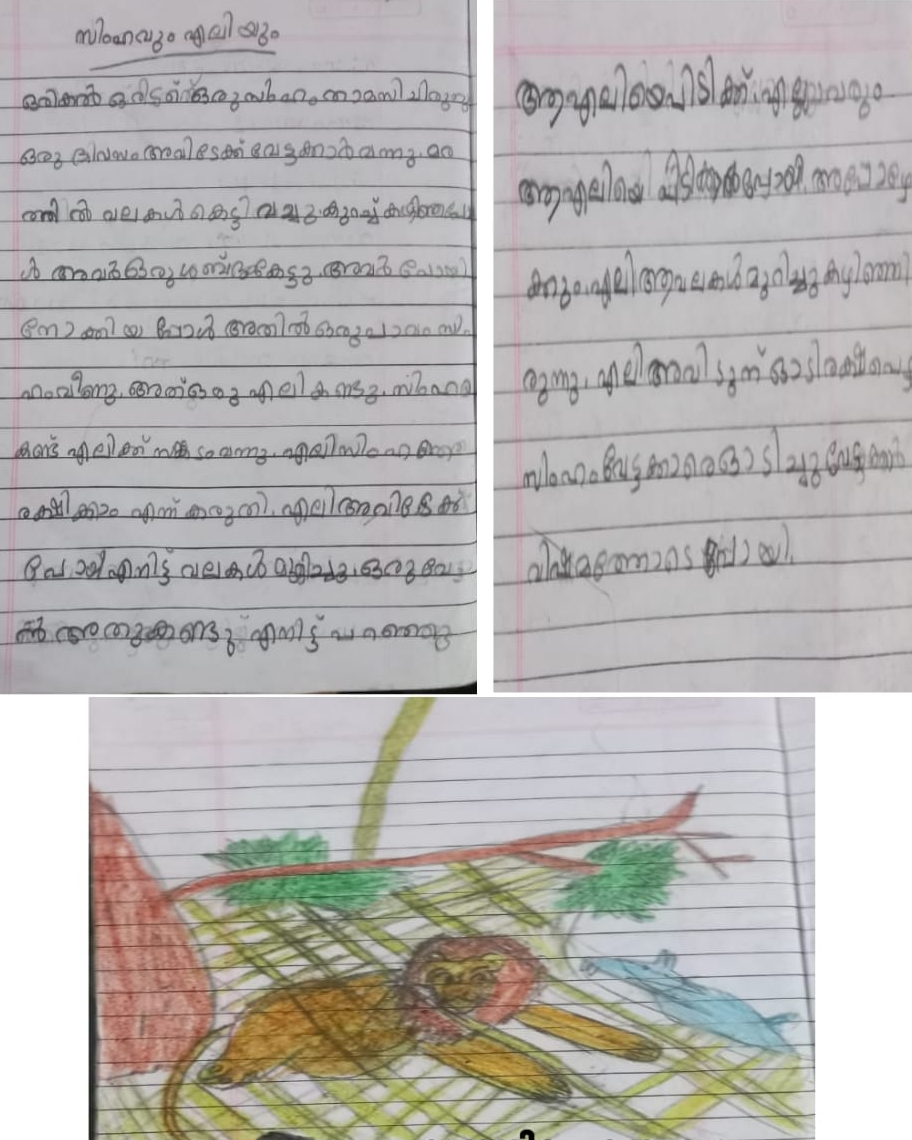 സിംഹവും എലിയും
ഒരിക്കൽ ഒരിടത്ത് ഒരു സിംഹം താമസിച്ചിരുന്നു
ഒരു ദിവസം അവിടേക്ക് വേട്ടക്കാർ വന്നു. മര
ത്തിൽ വലകൾ കെട്ടി വച്ചു. കുറച്ച് കഴിഞ്ഞപ്പോ
ൾ അവർ ഒരു ശബ്ദം കേട്ടു. അവർ പോയി
നോക്കിയപ്പോൾ അതിൽ ഒരു പാവം സിം
ഹം വീണു. അത് ഒരു എലി കണ്ടു. സിംഹത്തെ
കണ്ട് എലിക്ക് സങ്കടം വന്നു. എലി സിംഹത്തെ
രക്ഷിക്കാം എന്ന് കരുതി. എലി അവിടേക്ക്
പോയി എന്നിട്ട് വലകൾ മുറിച്ചു. ഒരു വേട്ട
ൻ അതു കണ്ടു എന്നിട്ട് പറഞ്ഞു
ആ എലിയെ പിടിക്ക്. എല്ലാവരും
ആ എലിയെ പിടിക്കാൻ പോയി. അപ്പോഴേ
ക്കും എലി ആ വലകൾ മുറിച്ചു കഴിഞ്ഞി
രുന്നു. എലി അവിടുന്ന് ഓടി രക്ഷപെട്ടു
സിംഹം വേട്ടക്കാരെ ഓടിച്ചു വേട്ടക്കാർ
വിഷമത്തോടെ പോയി.